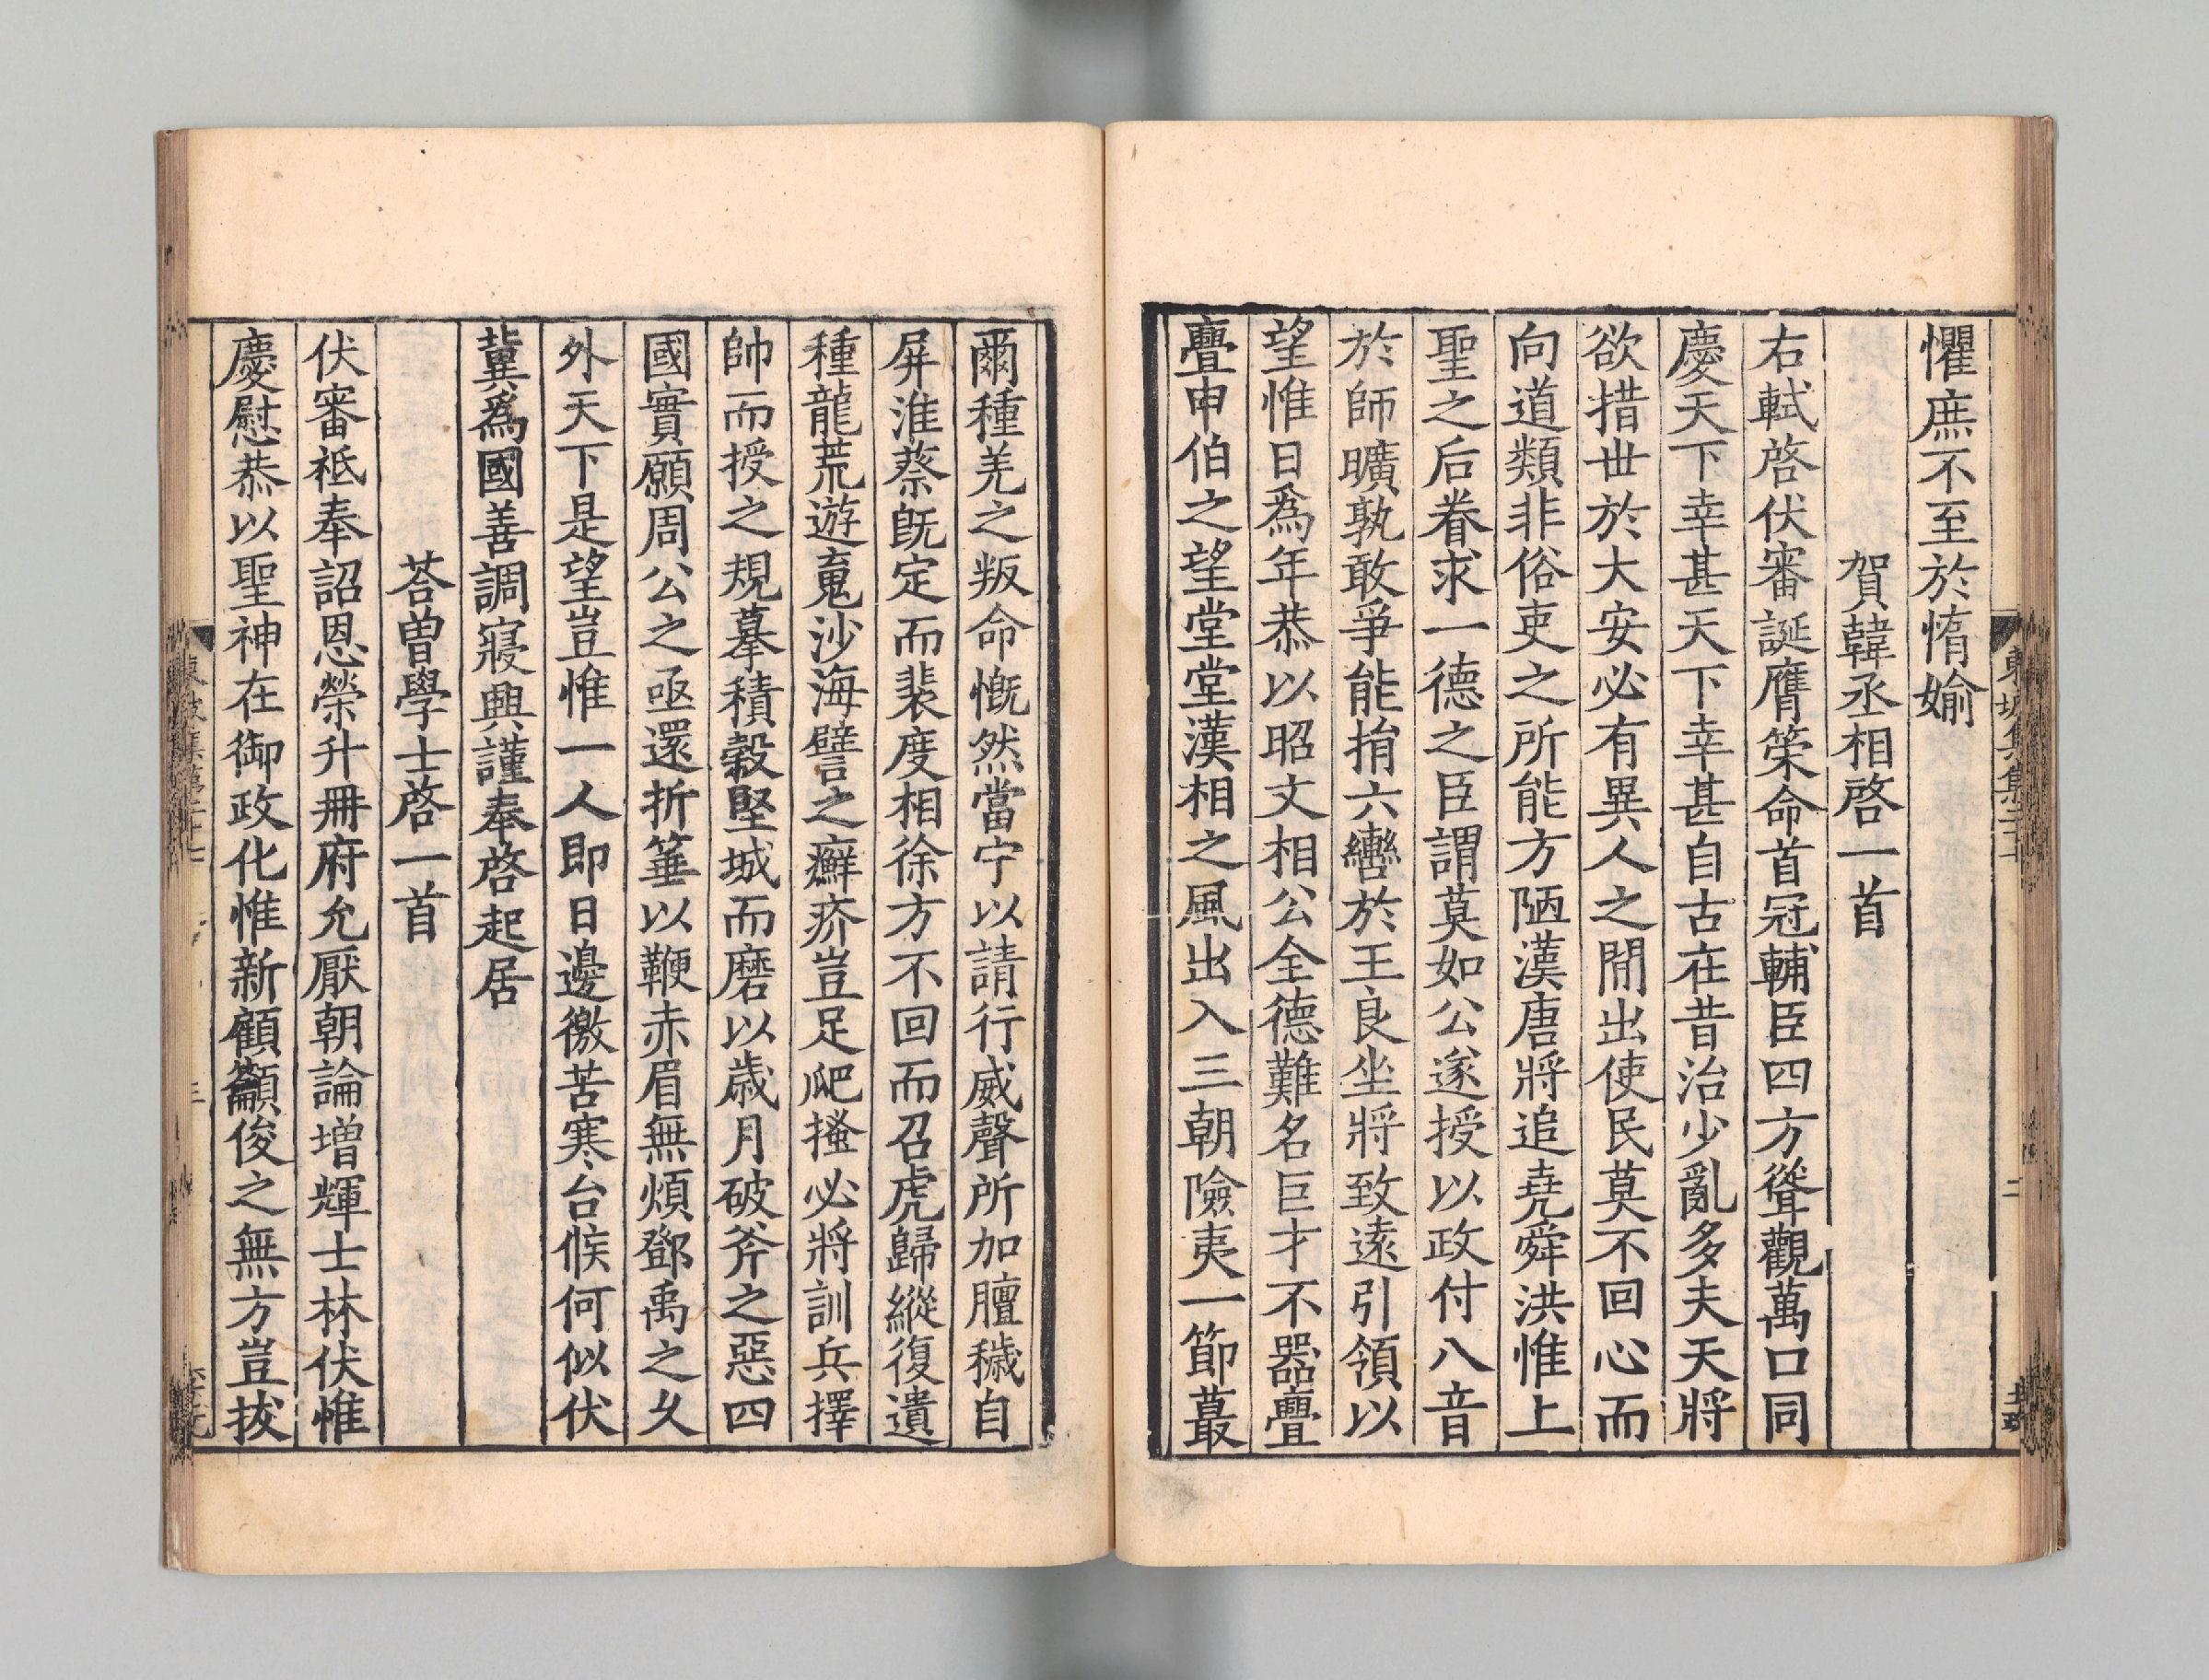 懼庶不至於惰媮
賀韓丞相啓一首
右軾啓伏審誕膺榮命首冠輔臣四方聳觀萬口同
慶天下幸甚天下幸甚自古在昔治少亂多夫天將
欲措世於大安必有異人之閒出使民莫不回心而
向道類非俗吏之所能方陋漢唐將追堯舜洪惟上
聖之后眷求一德之臣謂莫如公遂授以政付八音
於師曠孰敢爭能揹六轡於王良坐將致遠引領以
望惟日爲年恭以昭文相公全德難名巨才不器亹
亹申伯之望堂堂漢相之風出入三朝險夷一節蕞
爾種羌之叛命慨然當宁以請行威聲所加膻穢自
屏淮蔡既定而裴度相徐方不回而召虎歸縱復遺
種龍荒遊䰟沙海譬之癬疥豈足爬搔必將訓兵擇
帥而授之規摹積穀堅城而磨以歲月破斧之惡四
國實願周公之亟還折箠以鞭赤眉無煩鄧禹之久
外天下是望豈惟一人即日邊徼苦寒台候何似伏
冀爲國善調寢興謹奉啓起居
荅曾學士啓一首
伏審祗奉詔恩榮升冊府允厭朝論增輝士林伏惟
慶慰恭以聖神在御政化惟新顧籲俊之無方豈拔
東坡集第二十七
三
二